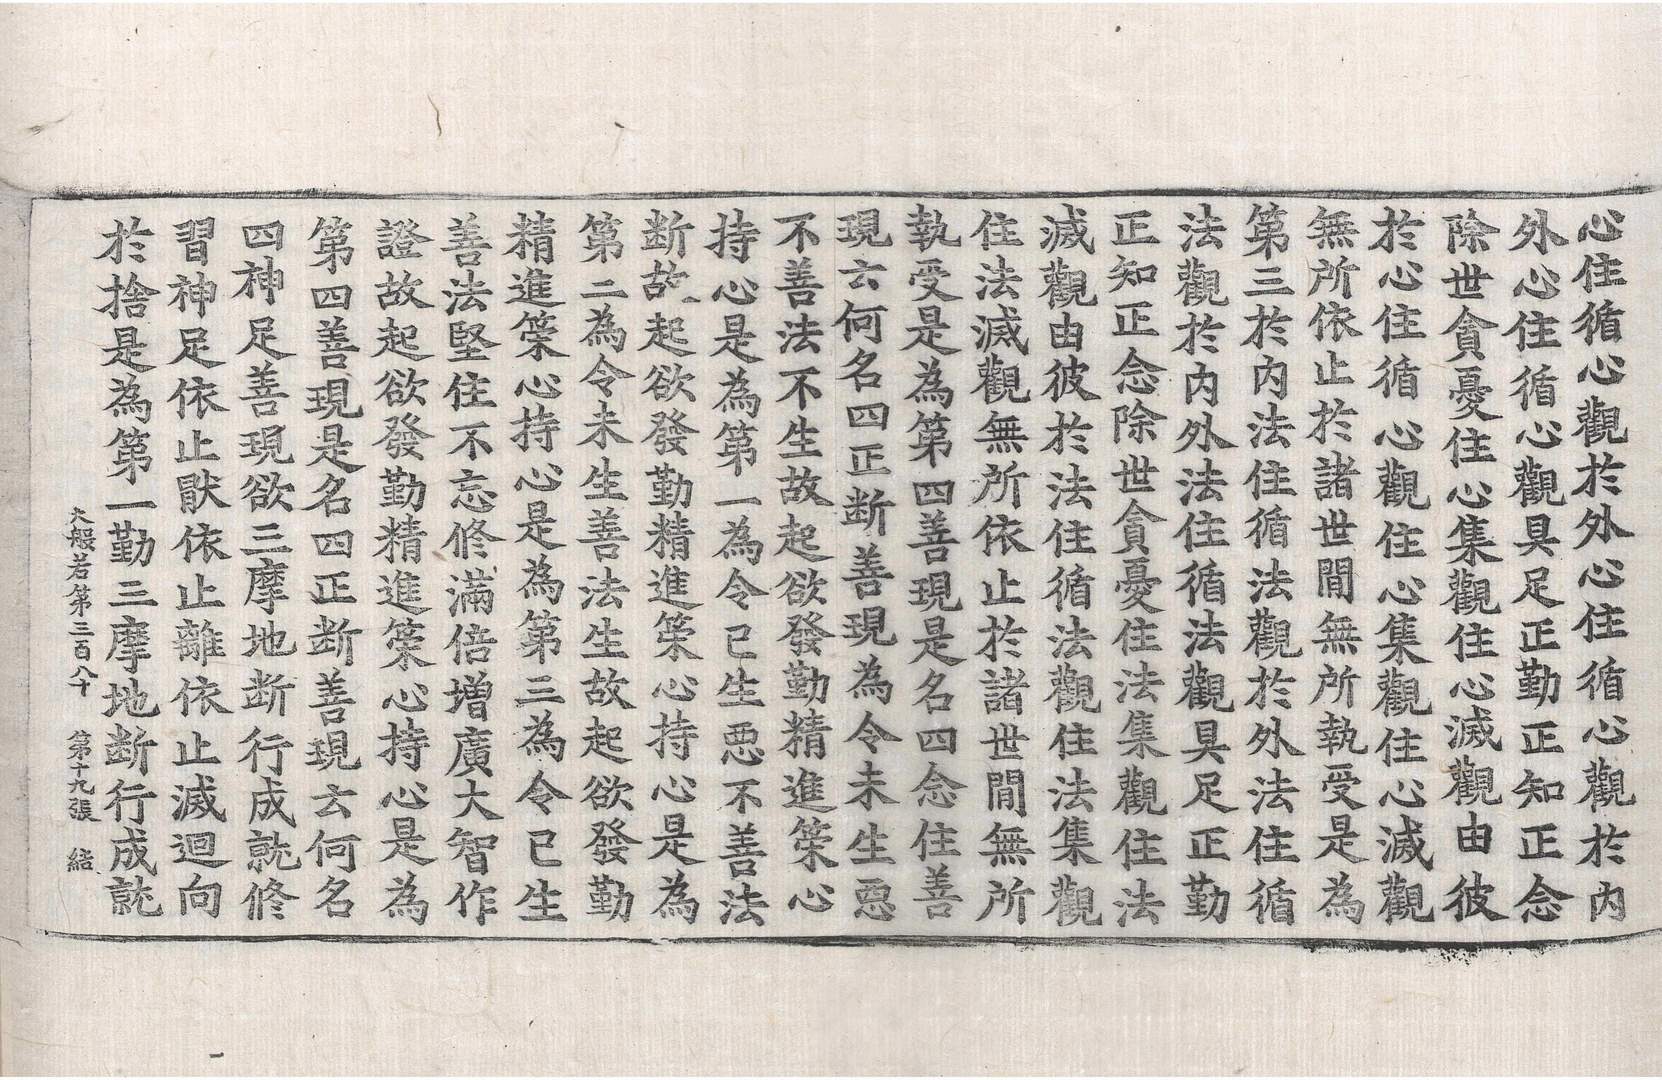 心住循心觀於外心住循心觀於內
外心住循心觀具足正勤正知正念
除世貪憂住心集觀住心滅觀由彼
於心住循心觀住心集觀住心滅觀
無所依止於諸世間無所執受是為
第三於內法住循法觀於外法住循
法觀於內外法住循法觀具足正勤
正知正念除世貪憂住法集觀住法
滅觀由彼於法住循法觀住法集觀
住法滅觀無所依止於諸世間無所
執受是為第四善現是名四念住善
現云何名四正断善現為令未生惡
不善法不生故起欲發勤精進策心
持心是為第一為令已生惡不善法
断故起欲發勤精進策心持心是為
第二為令未生善法生故起欲發勤
精進策心持心是為第三為令已生
善法堅住不忘修滿倍增廣大智作
證故起欲發勤精進策心持心是為
第四善現是名四正断善現云何名
四神足善現欲三摩地断行成就修
習神足依止猒依止離依止滅迴向
於捨是為第一勤三摩地断行成就
大般若第三百八十 第十九張 結